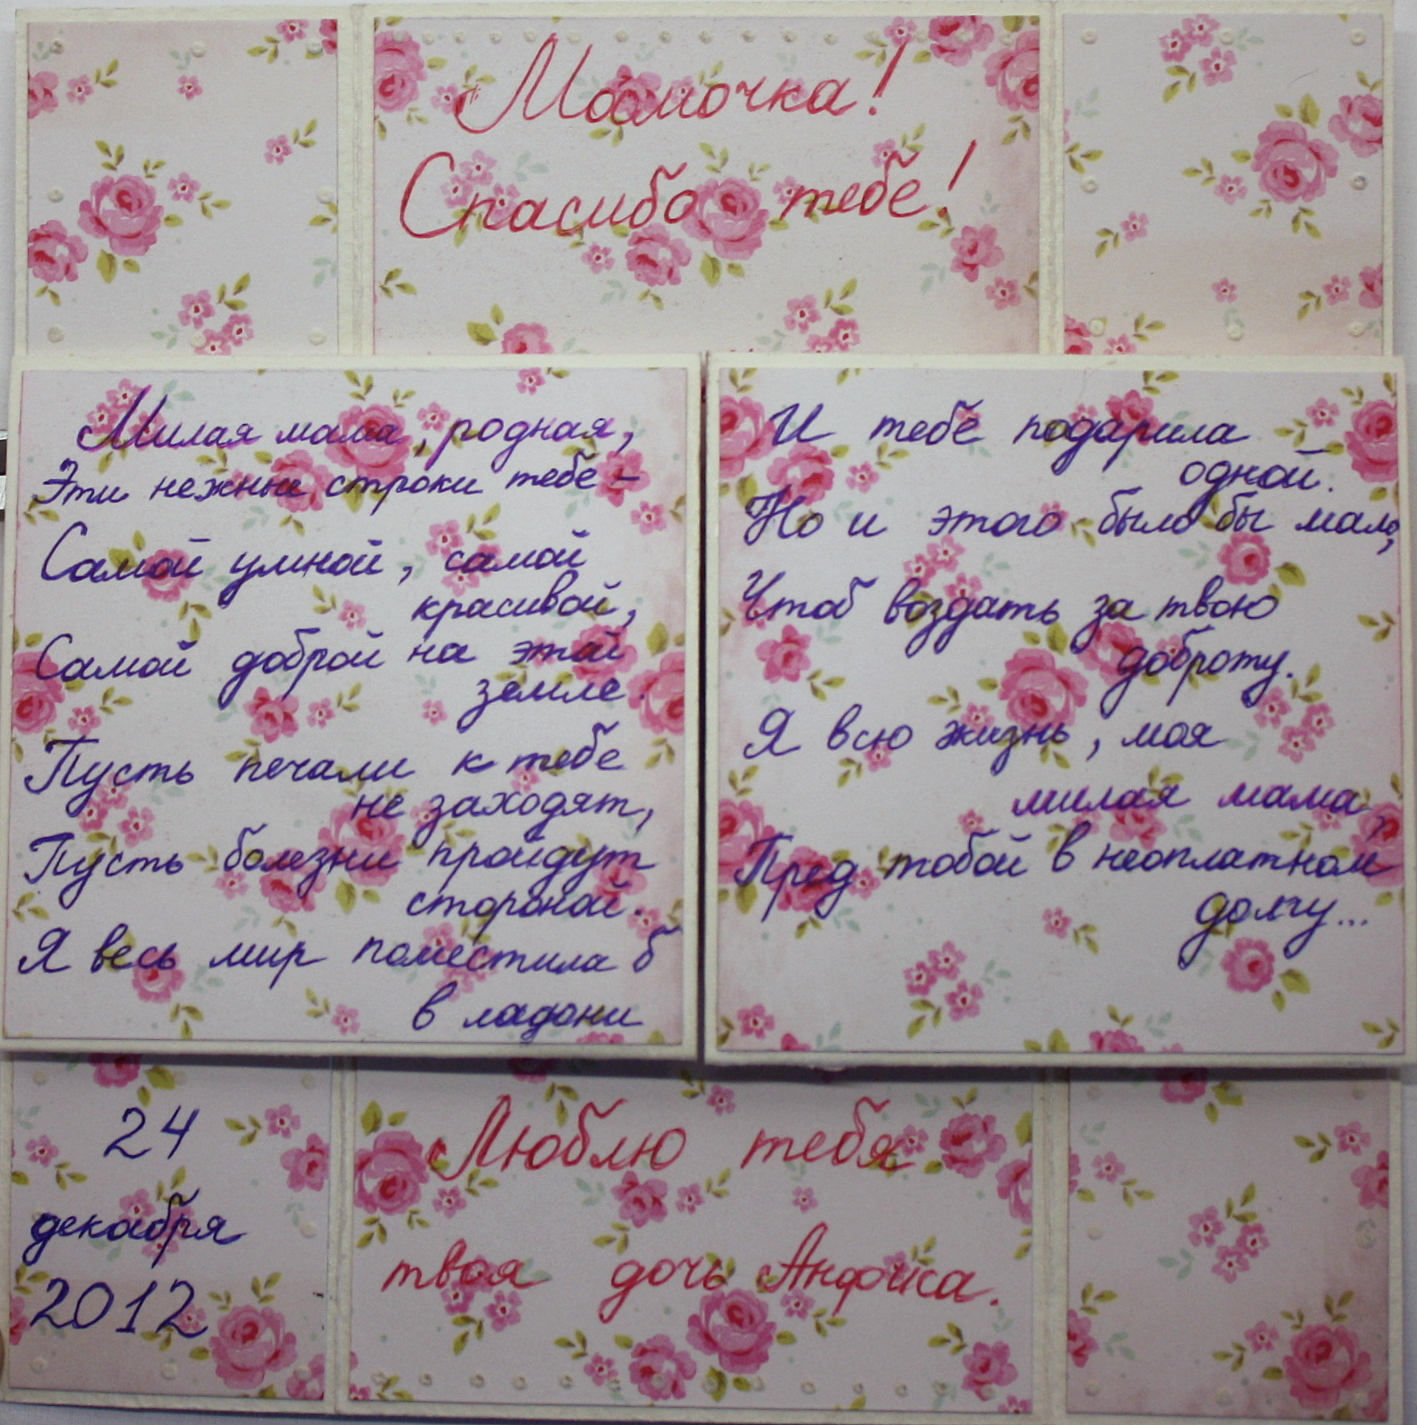 Мамочка!
Спасибо тебе!
Милая мама, родная,
Эти нежные строки тебе –
Самой умной, самой
красивой,
Самой доброй на этой
земле.
Пусть печали к тебе
не заходят,
Пусть болезни пройдут
стороной.
Я весь мир поместила б
в ладони
И тебе подарила
одной.
Но и этого было бы мало,
Чтоб воздать за твою
доброту.
Я всю жизнь, моя
милая мама,
Пред тобой в неоплатном
долгу...
24
декабря
2012
Люблю тебя
твоя дочь Анфиса.